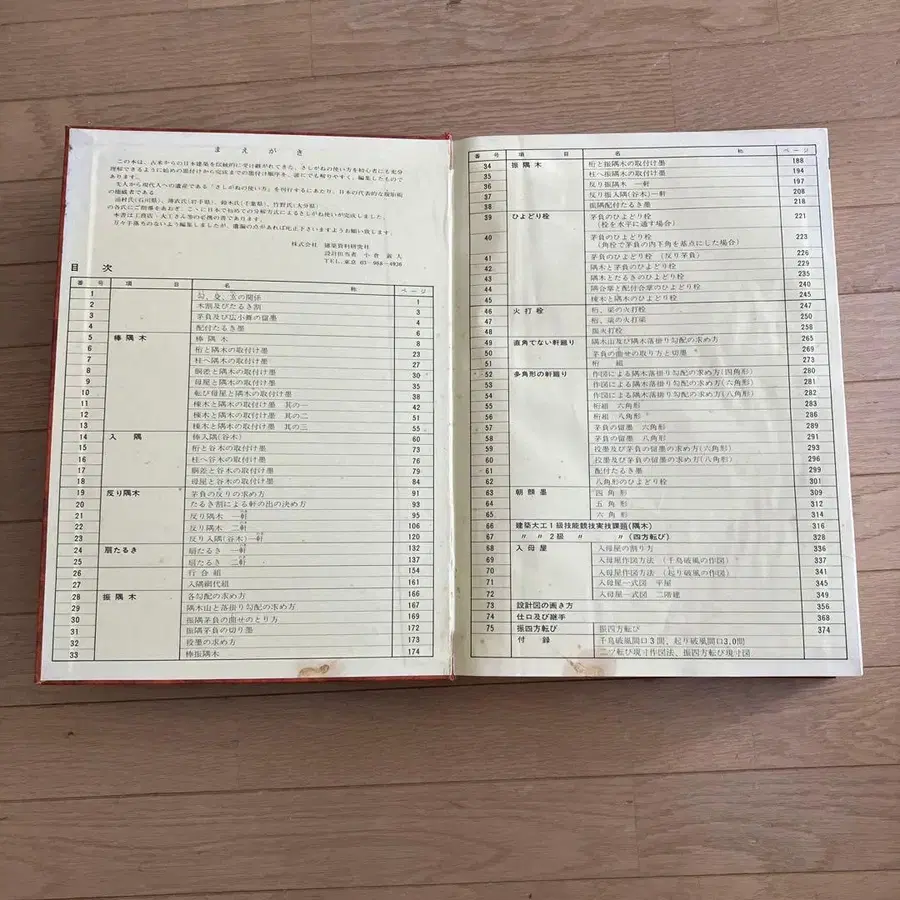 まえがき
この本は、古来からの日本建築を伝統的に受け継がれてきた、さしがねの使い方を初心者にも充分
理解できるように始めの墨付けから完成までの墨付け順序を、誰にでも解りやすく、編集したもので
あります。
先人から現代人への遺産である「さしがねの使い方」を刊行するにあたり、日本の代表的な規矩術
の継承者である
の各氏にご指導をあおぎ、こゝに日本で初めての分解方式によるさしがね使いが完成しました。
本書は工務店・大工さん等の必携の書であります。
万々手落ちのないよう編集しましたが、遺漏の点があれば叱正下さいますようお願い致します。
株式会社 建築資料研究社
設計担当者 小倉
TEL. 東京 03-
目 次
番号 項目 名称 ページ
1 勾、殳、玄の関係 1
2 木割及びたるき割 3
3 茅負及び広小舞の留墨 4
4 配付たるき墨 6
5 棒隅木 棒隅木 8
6 桁と隅木の取付け墨 23
7 柱へ隅木の取付け墨 27
8 胴差と隅木の取付け墨 30
9 母屋と隅木の取付け墨 35
10 転び母屋と隅木の取付け墨 38
11 棟木と隅木の取付け墨 其の一 42
12 棟木と隅木の取付け墨 其の二 51
13 棟木と隅木の取付け墨 其の三 55
14 入隅 棒入隅(谷木) 60
15 桁と谷木の取付け墨 73
16 柱へ谷木の取付け墨 76
17 胴差と谷木の取付け墨 79
18 母屋と谷木の取付け墨 84
19 反り隅木 茅負の反りの求め方 91
20 たるき割による軒の出の決め方 93
21 反り隅木 一軒 95
22 反り隅木 二軒 106
23 反り入隅(谷木)一軒 120
24 扇たるき 扇たるき 一軒 132
25 扇たるき 二軒 137
26 行合組 154
27 入隅網代組 161
28 振隅木 各勾配の求め方 166
29 隅木山と落掛り勾配の求め方 167
30 振隅茅負の曲せのとり方 169
31 振隅茅負の切り墨 172
32 投墨の求め方 173
33 棒振隅木 174
番号 項目 名称 ページ
34 振隅木 桁と振隅木の取付け墨 188
35 柱へ振隅木の取付け墨 194
36 反り振隅木 一軒 197
37 反り振入隅(谷木)一軒 208
38 振隅配付たるき墨 218
39 ひよどり栓 茅負のひよどり栓 221
(栓を水平に通す場合)
40 茅負のひよどり栓 223
(角栓で茅負の内下角を基点にした場合)
41 茅負のひよどり栓 (反り茅負) 226
42 隅木と茅負のひよどり栓 229
43 隅木とたるきのひよどり栓 235
44 隅合掌と配付合掌のひよどり栓 240
45 棟木と隅木のひよどり栓 245
46 火打栓 桁、梁の火打栓 247
47 桁、梁の火打梁 250
48 振火打栓 258
49 直角でない軒廻り 隅木山及び隅木落掛り勾配の求め方 265
50 茅負の曲せの取り方と切墨 269
51 桁組 273
52 多角形の軒廻り 作図による隅木落掛り勾配の求め方(四角形) 280
53 作図による隅木落掛り勾配の求め方(六角形) 281
54 作図による隅木落掛り勾配の求め方(八角形) 282
55 桁組 六角形 283
56 桁組 八角形 286
57 茅負の留墨 六角形 289
58 茅負の留墨 八角形 291
59 投墨及び茅負の留墨の求め方(六角形) 293
60 投墨及び茅負の留墨の求め方(八角形) 296
61 配付たるき墨 299
62 八角形のひよどり栓 301
63 朝顔墨 四角形 309
64 五角形 312
65 六角形 314
66 建築大工1級技能競技実技課題(隅木) 316
67 〃 〃2級 〃 〃 (四方転び) 328
68 入母屋 入母屋の割り方 336
69 入母屋作図方法 (千鳥破風の作図) 337
70 入母屋作図方法 (起り破風の作図) 341
71 入母屋一式図 平屋 345
72 入母屋一式図 二階建 349
73 設計図の画き方 356
74 仕口及び継手 368
75 振四方転び 振四方転び 374
付録 千鳥破風間口3間、起り破風間口3.0間
二ツ転び現寸作図法、振四方転び現寸図